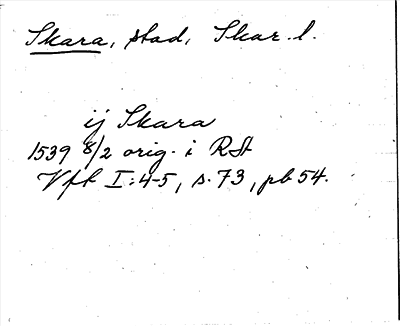 Skara, stad, Skar. l.
ij Skara
1539 8/2 orig. i RSt
Vfb I:4-5, s. 73, pb 54.